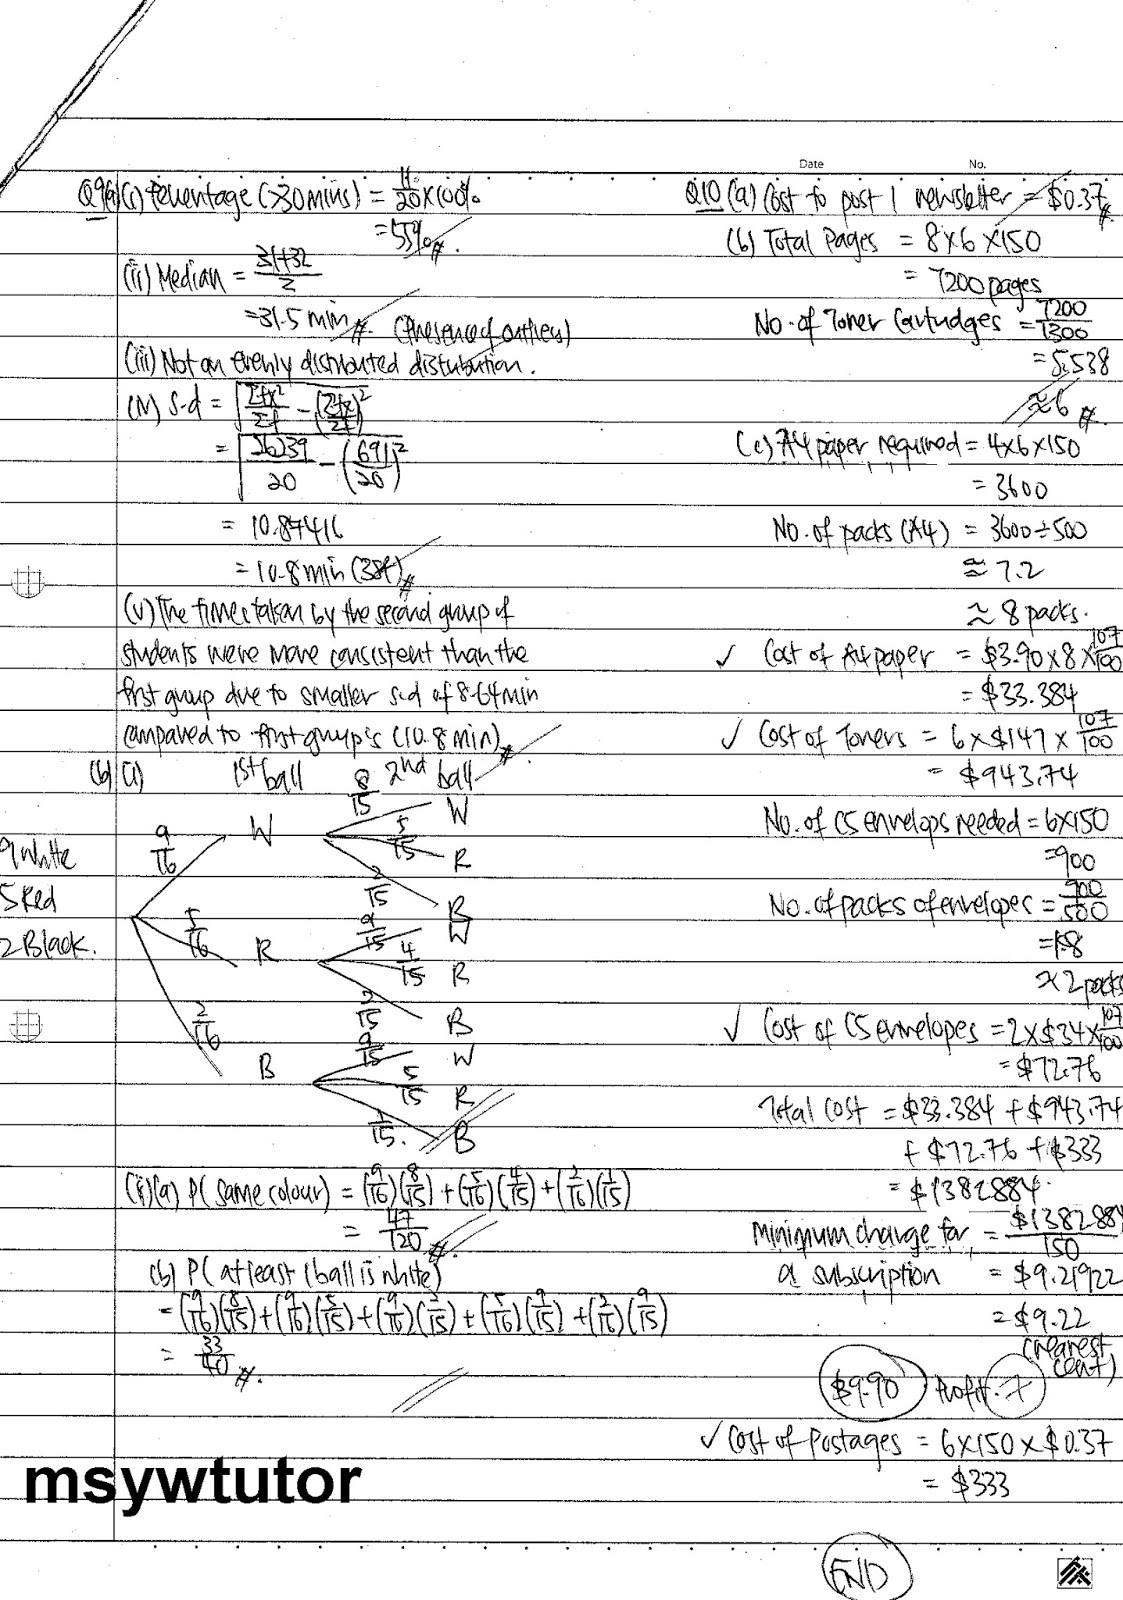 Date No.
Q9(a)(i) Percentage (>30mins) = 11/20 × 100%
= 55% #.
(ii) Median = (31+32)/2
= 31.5 min #. (Presence of outliers)
(iii) Not an evenly distributed distribution.
(iv) S.d = √(Σfx²/Σf − (Σfx/Σf)²)
= √(26239/20 − (691/20)²)
= 10.87416
= 10.8 min (3sf) #
(v) The times taken by the second group of
students were more consistent than the
first group due to smaller s.d of 8.64min
compared to first group's (10.8min). #
(b)(i) 1st ball 2nd ball
9 White
5 Red
2 Black.
9/16 W
8/15 W
5/15 R
2/15 B
5/16 R
9/15 W
4/15 R
2/15 B
2/16 B
9/15 W
5/15 R
1/15. B
(ii)(a) P(same colour) = (9/16)(8/15) + (5/16)(4/15) + (2/16)(1/15)
= 47/120 #.
(b) P(at least 1 ball is white)
= (9/16)(8/15) + (9/16)(5/15) + (9/16)(2/15) + (5/16)(9/15) + (2/16)(9/15)
= 33/40 #.
msywtutor
Q10 (a) Cost to post 1 newsletter = $0.37 #.
(b) Total Pages = 8×6×150
= 7200 pages
No. of Toner Cartridges = 7200/1300
= 5.538
≈ 6 #.
(c) A4 paper required = 4×6×150
= 3600
No. of packs (A4) = 3600÷500
≈ 7.2
≈ 8 packs.
✓ Cost of A4 paper = $3.90 × 8 × 107/100
= $33.384
✓ Cost of Toners = 6 × $147 × 107/100
= $943.74
No. of C5 envelops needed = 6×150
= 900
No. of packs of envelopes = 900/500
= 1.8
≈ 2 packs
✓ Cost of C5 envelopes = 2 × $34 × 107/100
= $72.76
Total Cost = $33.384 + $943.74
+ $72.76 + $333
= $1382.884.
Minimum charge for a subscription = $1382.884/150
= $9.21922
= $9.22
(nearest cent)
$9.90 Profit. 7
✓ Cost of Postages = 6×150×$0.37
= $333
END